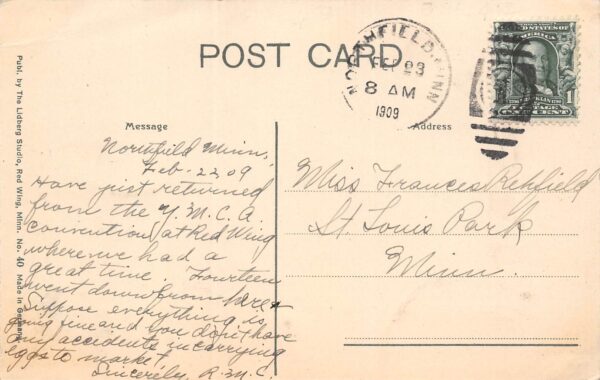 POST CARD
NORTHFIELD, MINN
FEB 23
8 AM
1909
UNITED STATES OF AMERICA
FRANKLIN
1
POSTAGE
ONE CENT
Publ. by The Lidberg Studio, Red Wing, Minn. No. 40 Made in Germany
Message
Address
Northfield Minn,
Feb-22 09
Have just returned
from the Y.M.C.A.
convention at Red Wing
where we had a
great time. Fourteen
went down from here
Suppose everything is
going fine and you don't have
any accidents in carrying
eggs to market
Sincerely, R.M.C.
Miss Frances Rehfield
St Louis Park
Minn.